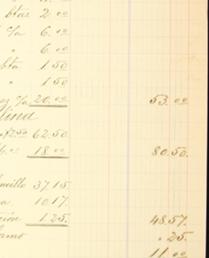 btas 2.00
c/u 6.00
" 6.00
bta 1.50
" 1.50
c/u 20.00 53.00
lina
a 2.50 62.50
18.00 80.50
cillo 37.15
10.17
cion 1.25 48.57
amo .25
11.00